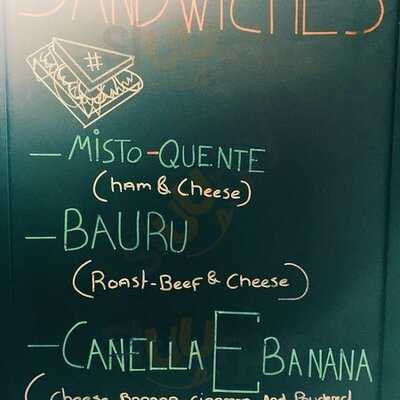 SANDWICHES
#
— MISTO-QUENTE
(HAM & CHEESE)
— BAURU
(ROAST-BEEF & CHEESE)
— CANELLA E BANANA
(CHEESE, BANANA, CINAMON AND POWDERED